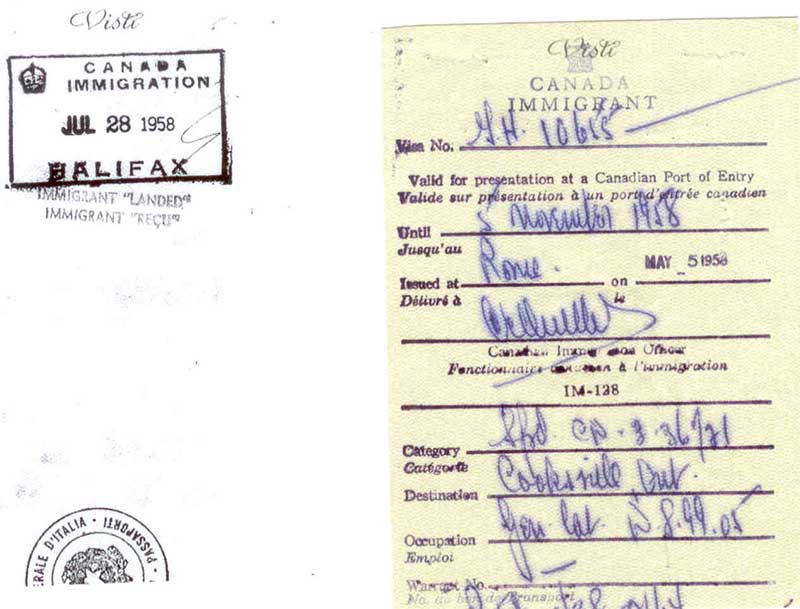 Visti
CANADA
IMMIGRATION
JUL 28 1958
HALIFAX
IMMIGRANT "LANDED"
IMMIGRANT "REÇU"
PASSAPORTI
ERALE D'ITALIA
Visti
CANADA
IMMIGRANT
Visa No. G.H. 10655
Valid for presentation at a Canadian Port of Entry
Valide sur présentation à un port d'entrée canadien
Until 5 November 1958
Jusqu'au
Issued at Rome. on MAY 5 1958
Délivré à le
Canadian Immigration Officer
Fonctionnaire canadien à l'immigration
IM-128
Category Spd. CP.
Catégorie
Destination Cooksville, Ont.
Occupation Gen. Lab. 8.99.05
Emploi
Warrant No.
No. du bon de transport